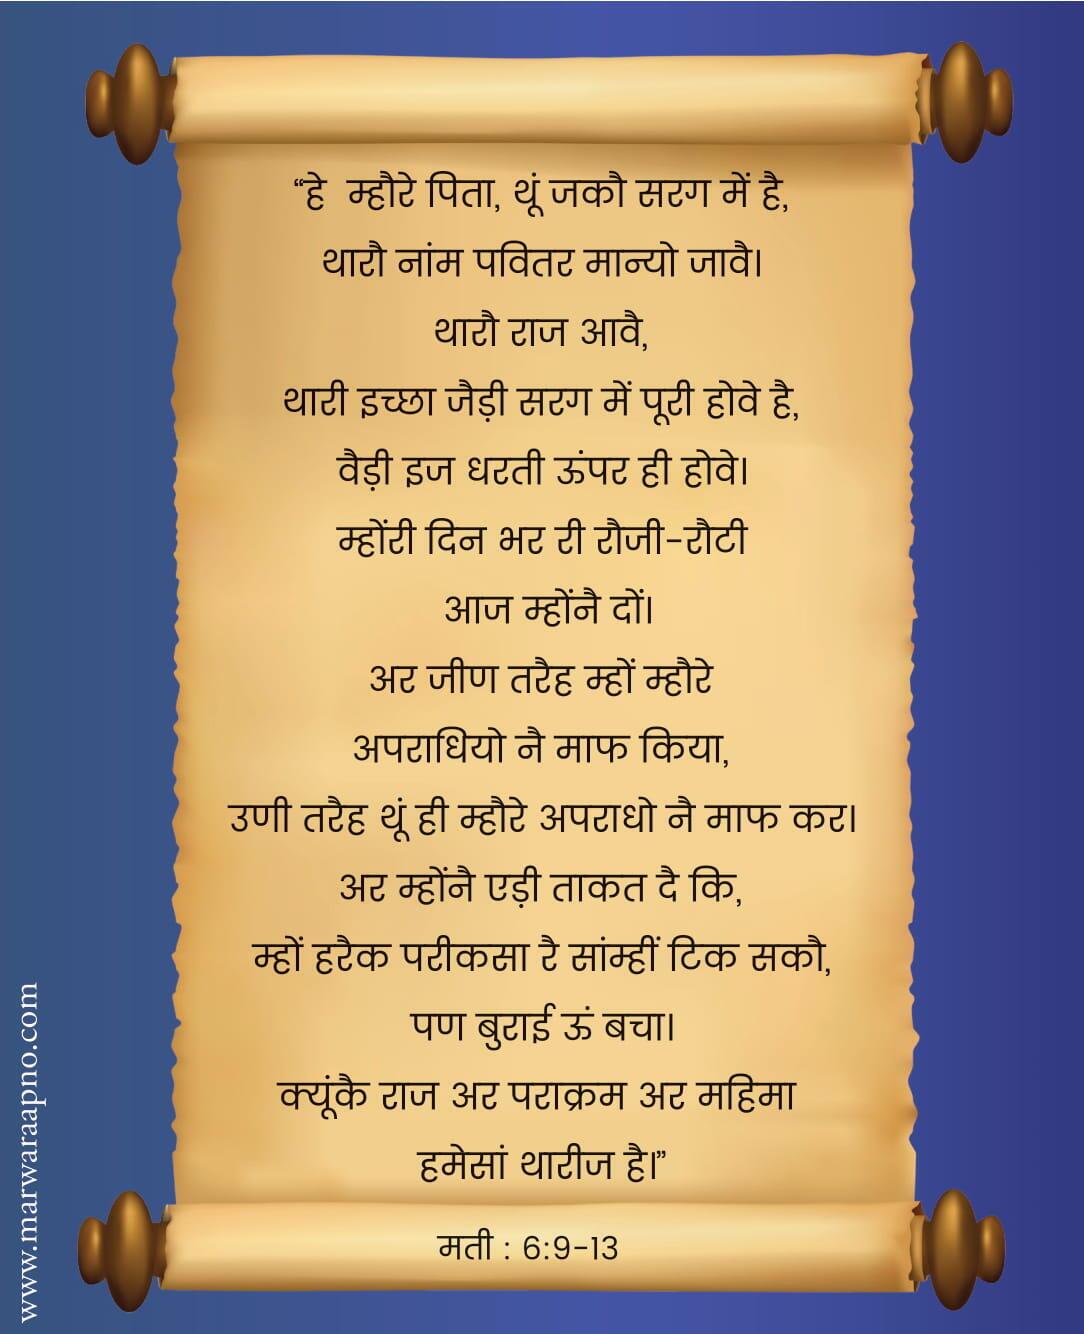 “हे  म्हौरे पिता, थूं जकौ सरग में है,
थारौ नांम पवितर मान्यो जावै।
थारौ राज आवै,
थारी इच्छा जैड़ी सरग में पूरी होवे है,
वैड़ी इज धरती ऊंपर ही होवे।
म्होंरी दिन भर री रौजी-रौटी
आज म्होंनै दों।
अर जीण तरैह म्हों म्हौरे
अपराधियो नै माफ किया,
उणी तरैह थूं ही म्हौरे अपराधो नै माफ कर।
अर म्होंनै एड़ी ताकत दै कि,
म्हों हरैक परीकसा रै सांम्हीं टिक सकौ,
पण बुराई ऊं बचा।
क्यूंकै राज अर पराक्रम अर महिमा
हमेसां थारीज है।”
मती : 6:9-13
www.marwaraapno.com